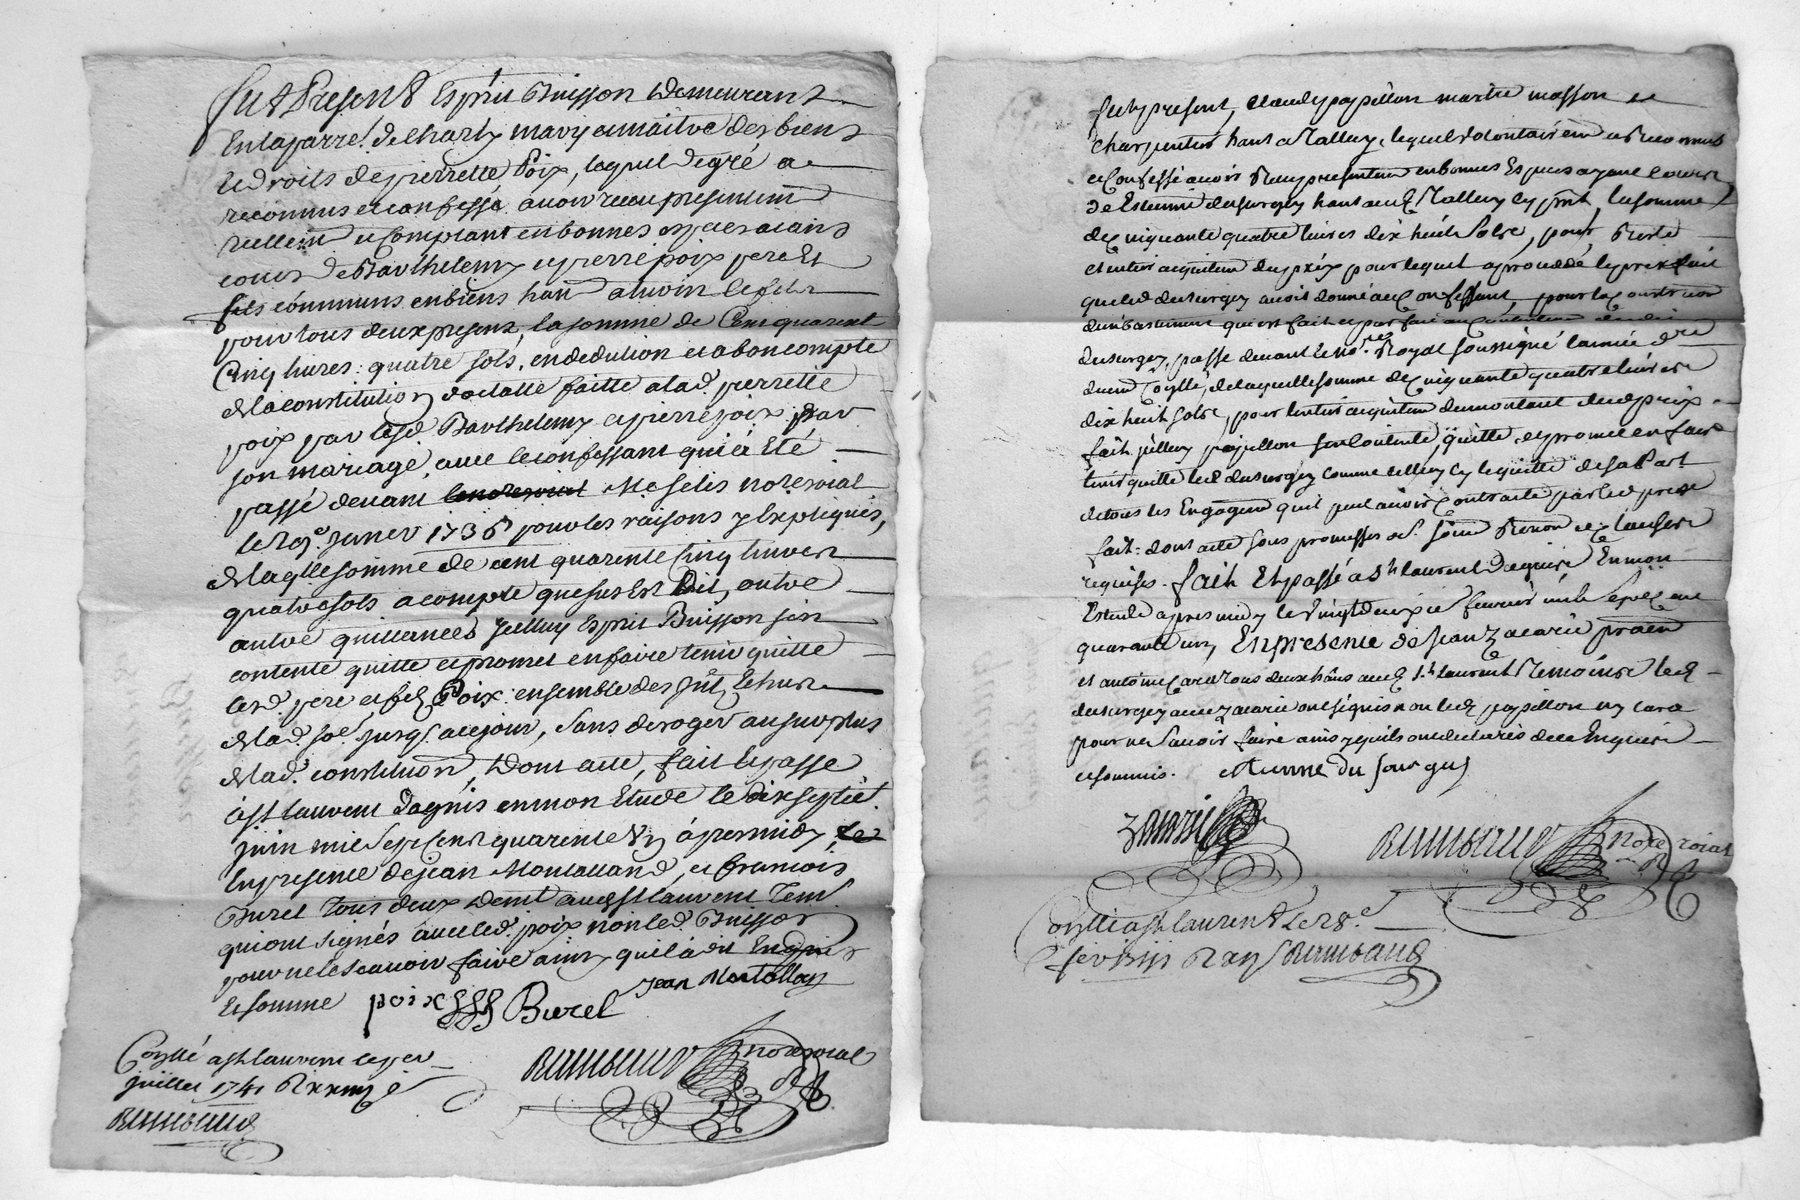 fut Present Esprit Buisson demeurant
En laparre. de Charly mary et maitre des biens
et droits de pierrette Poix, lequel de gré a
reconnus et confessé avoir receu presentem
reellem et comptant en bonnes especes aians
cours de Barthelemy et pierre poix pere et
fils communs en biens le fils
pour tous deux present, la somme de Cent quarente
Cinq livres quatre sols, en dedution et a bon compte
de la constitution dotalle faitte a lad. pierrette
poix par lesd Barthelemy et pierre poix par
son mariage avec le confessant qui a Eté
passé devant Me Selis not roial
le janer 1736 pour les raisons y Expliqués,
de laqlle somme de cent quarente Cinq livres
quatre sols a compte que sus Est Dit, outre
autre quittances Jcelluy Esprit Buisson s'en
contente quitte et promet en faire tenir quitte
lesd. pere et fils Poix ensemble des
de lad. jusq. a ce jour, Sans deroger au surplus
de lad. constitution, Dont acte, fait et passé
a st laurent dagnis en mon Etude le dix septie.
juin mil Sept Cent quarente Vn apres midy,
En presence de jean Montalland, et francois
Burel Tous deux dud st laurent Tem.
qui ont signés avec led. poix non led. Buisson
pour ne le scavoir faire ainsy qu'il a dit Enquis
Et somme poix Burel Jean Montallan
Corllé a st laurent le er
juillet 1741 R
Rambaud
Rambaud not roial
fut present, Claude papillon maitre masson et
charpentier hant a Talluy, lequel volontairem a Reconnut
et Confessé avoir Receu presentem en bonnes Especes ayant cours
de Estienne dusurgey hant aud Talluy cy prnt, la somme
de Cinquante quatre livres dix huit Sols, pour Reste
et entier acquittem du prix pour lequel a procedé le prixfait
que led dusurgey avoit donné aud Confessant, pour la Construction
d'un bastiment qui est fait et parfait au Contentem dud
dusurgey, passé devant le no.re Royal soussigné l'année d.re
duem Corllé, de laquelle somme de Cinquante quatre livres
dix huit sols, pour l'entier acquittem du montant dud prix
fait, jcelluy papillon s'en Contente, quitte, et promet en faire
tenir quitte led dusurgey comme icelluy cy le quitte de sa Part
de tous les Engagem qu'il peut avoir Contracté par led prix
fait: dont acte sous promesses ob. soum Renon et Clauses
requises. fait Et passé a St laurent dagnis En mon
Estude apres midy le vingt deuxie fevrier mil sept Cent
quarante un, En presence de Jean Zacarie praen
et antoine Tous deux hans aud St laurent Temoins led
dusurgey avec Zacarie ont signés non led papillon ny
pour ne Savoir faire ainsy qu'ils ont declarés de ce Enquis
et sommis. etienne du sourgey
Zacarie
Rambaud not roial
Corllé a st laurent le 28.e
fevrier R Rambaud